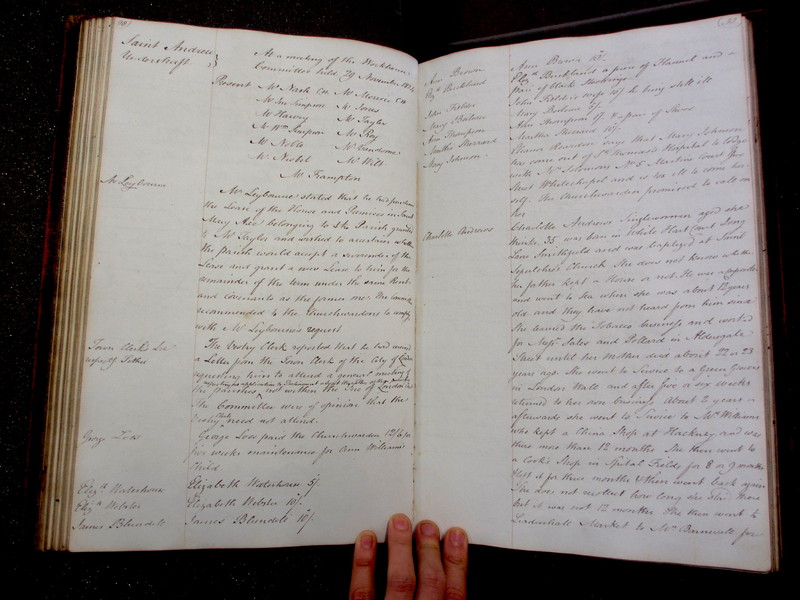 Saint Andrew
Undershaft
At a meeting of the Workhouse
Committee held 29 November
Present Mr Nash CW Mr Morris CW
Mr Simpson Mr Jones
Mr Harvey Mr Taylor
Mr Wm Simpson Mr Roy
Mr Noble Mr
Mr Mr Witt
Mr Frampton
Mr Leybourne
Mr Leybourne stated that he had purchased
the Lease of the House and Premises in Saint
Mary Axe belonging to the Parish granted
to Mr Taylor and wished to ascertain whether
the parish would accept a surrender of the
Lease and grant a new Lease to him for the
remainder of the term under the same Rent
and covenants as the former one. The Committee
recommended to the Churchwardens to comply
with Mr Leybourne's request
Town Clerk's Lre
respectg Tithes
The Vestry Clerk reported that he had received
a Letter from the Town Clerk of the City of London
requesting him to attend a general meeting of
respecting an application to Parliament
the parishes not within the Fire of London
The Committee were of opinion that the
Vestry Clerk need not attend.
George Lox
George Lox paid the Churchwarden 12/6 for
five weeks maintenance for Ann William's
Child
Elizth Waterhouse Elizabeth Waterhouse 5/.
Elizth Webster Elizabeth Webster 10/.
James Blundell James Blundell 10/.
Ann Brown Ann Brown
Elizth Buckland Elizth Buckland a piece of Flannel and a
pair of black Stockings
John Fields John Fields's wife 10/. he being still ill
Mary Barlow Mary Barlow 5/.
Ann Thompson Ann Thompson a pair of Shoes
Martha Sherrard Martha Sherrard 10/.
Mary Johnson Eleanor Reardon says that Mary Johnson
has come out of St Thomas's Hospital to lodge
with Mr Solomons No 5 Martins Court
Street Whitechapel and is too ill to come her
self. The Churchwarden promised to call on
her
Charlotte Andrews Charlotte Andrews Singlewoman aged she
thinks 35 was born in White Hart Court Long
Lane Smithfield and was baptized at Saint
Sepulchre's Church She does not know whether
her father kept a House or not He was a
and went to sea when she was about 12 years
old and they have not heard from him since
She learned the Tobacco business and worked
for Messrs Sales and Pollard in Aldersgate
Street until her Mother died about 22 or 23
years ago. She went to Service to a Green Grocers
in London Wall and after five or six weeks
returned to her own business about 2 years
afterwards she went to Service to Mrs
who kept a China Shop at Hackney and was
there more than 12 months She then went to
a Cook's Shop in Spital Fields for 8 or 9 months
left it for three months & then went back again
She does not recollect how long she staid there
but it was not 12 months She then went to
Leadenhall Market to Mrs for